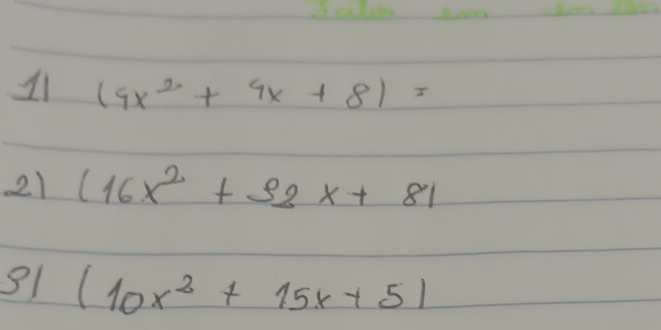 1) (4x² + 4x + 8) =
2) (16x² + 32x + 8)
3) (10x² + 15x + 5)